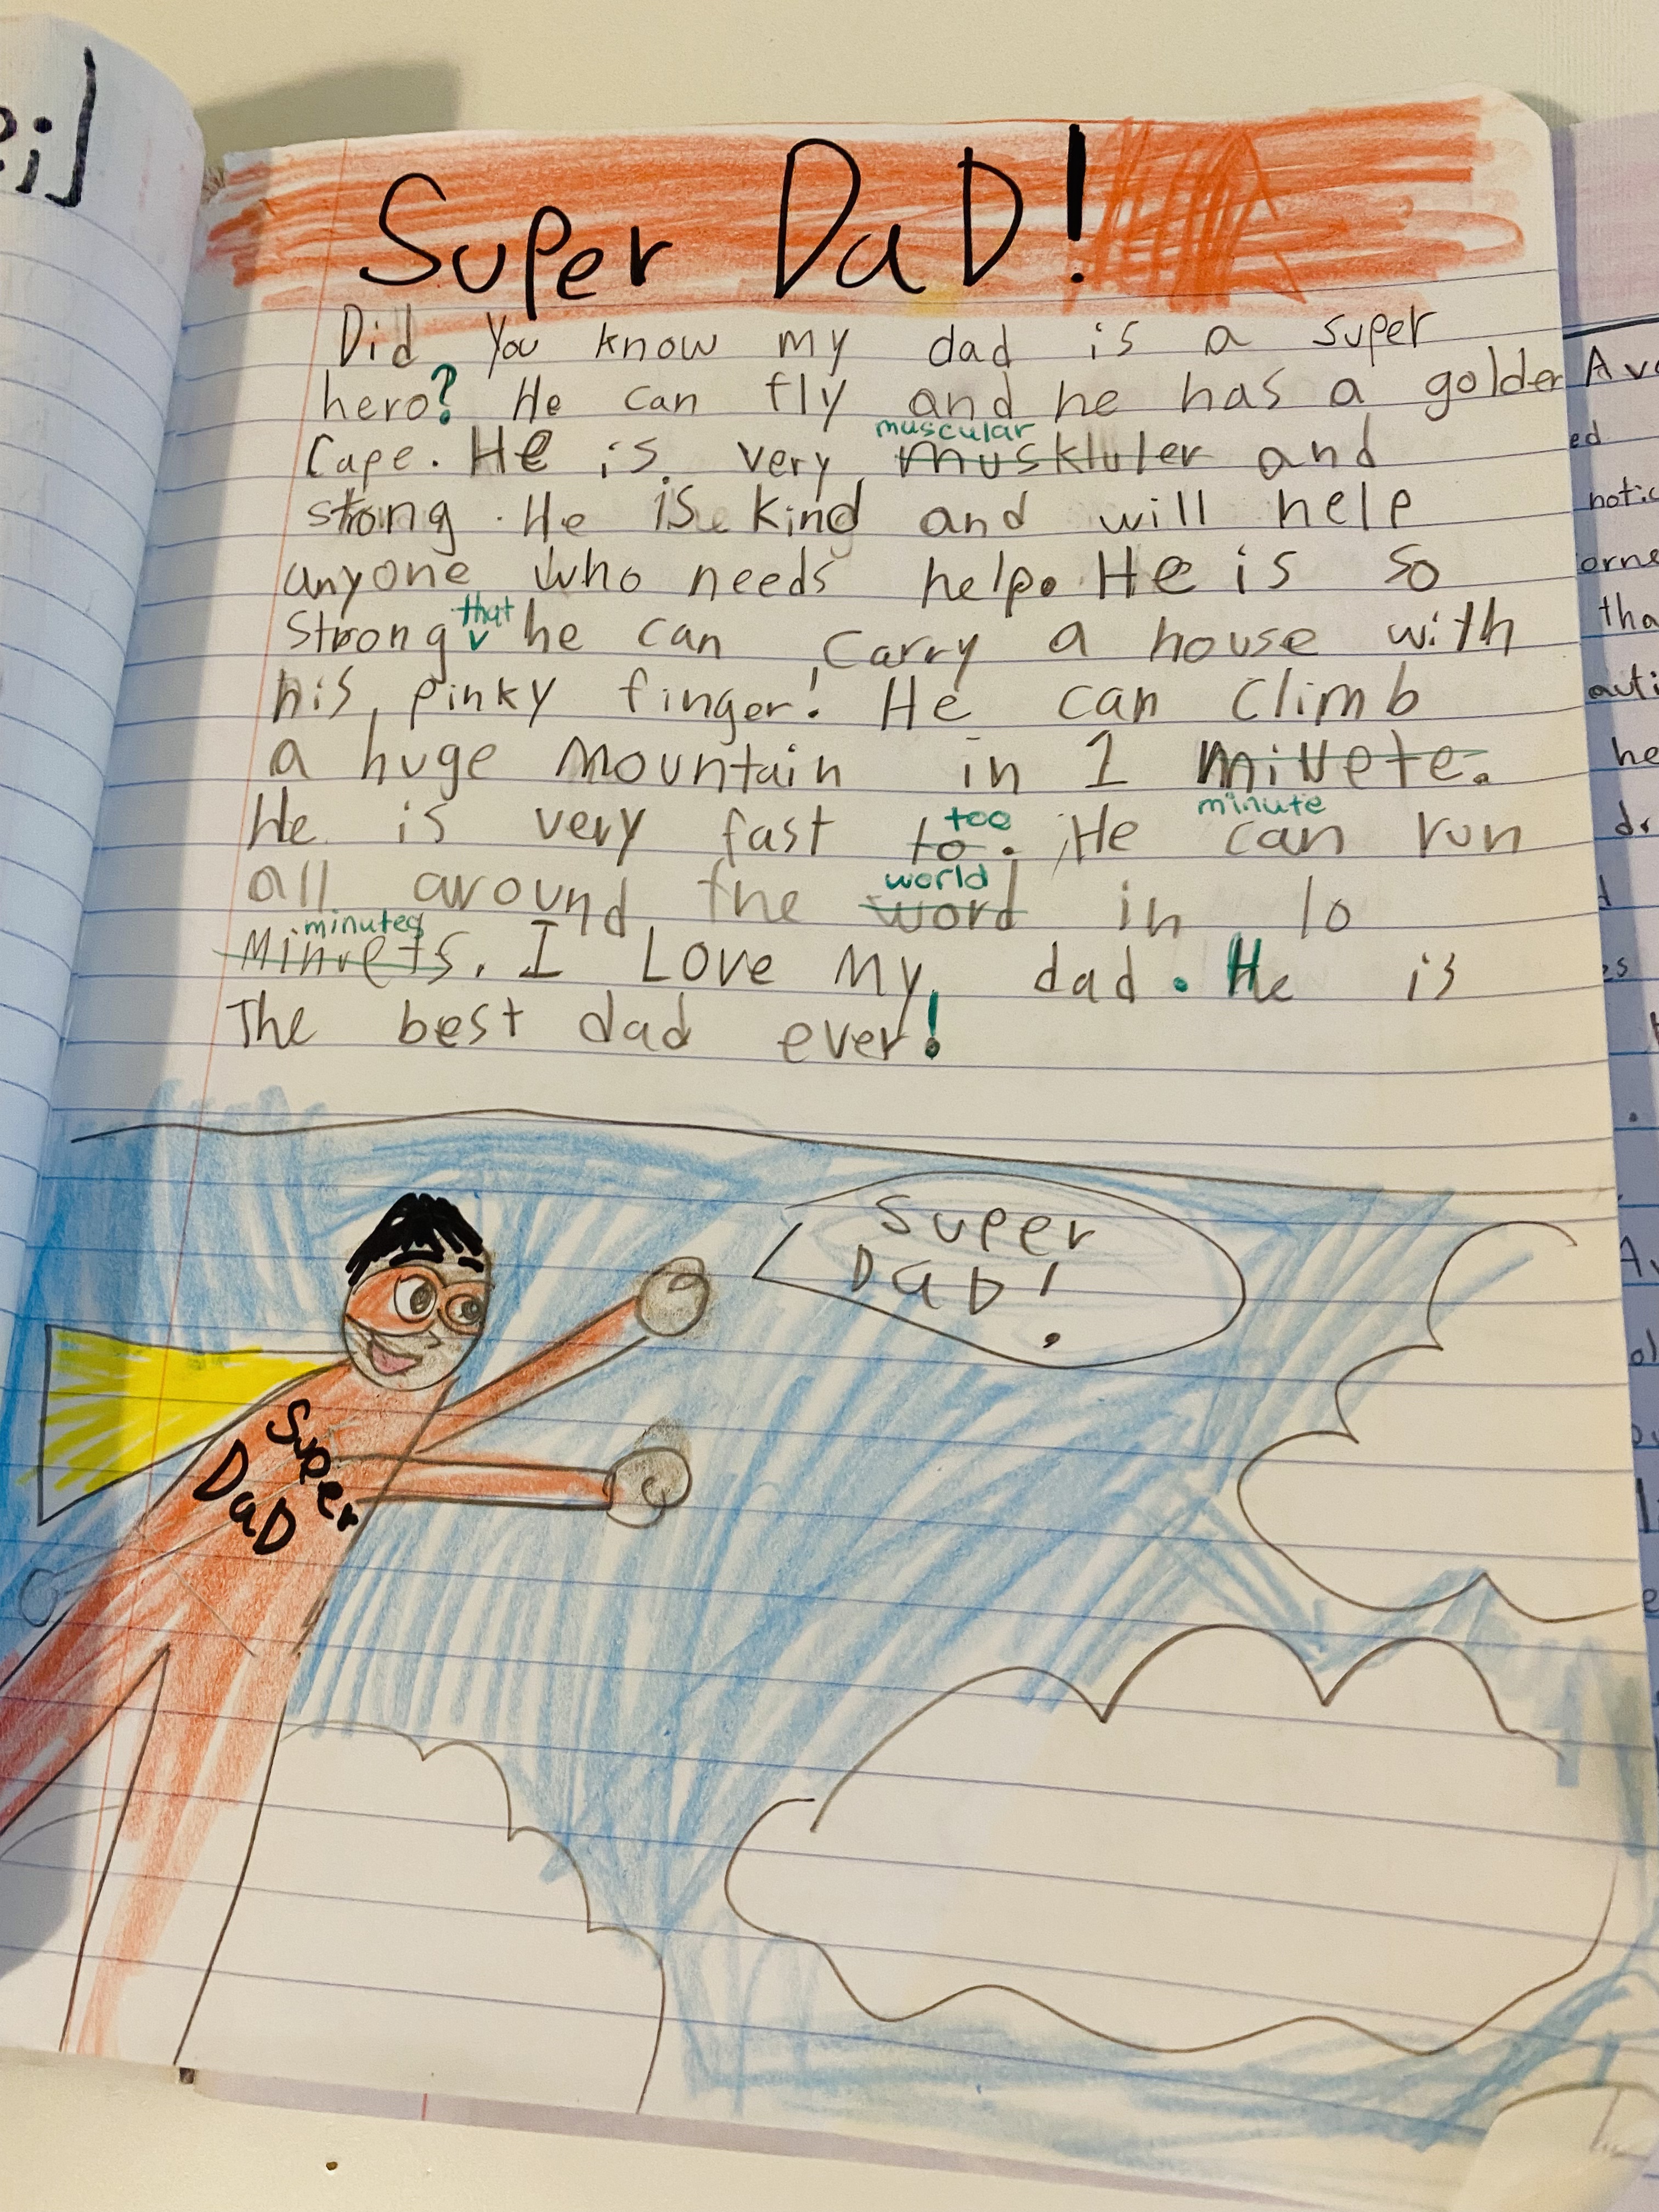 ei]
Super DaD!
Did You know my dad is a super
hero? He can fly and he has a golden
muscular
Cape. He is very muskluler and
strong. He is kind and will help
anyone who needs help. He is so
that
Strong he can carry a house with
his pinky finger! He can climb
a huge mountain in 1 minete.
minute
too
He is very fast to. He can run
world
all around the word in 10
minutes
minuets. I Love My dad. He is
The best dad ever!
Super
DaD!
Super
DaD
Av
ed
notic
orne
tha
auti
he
dr